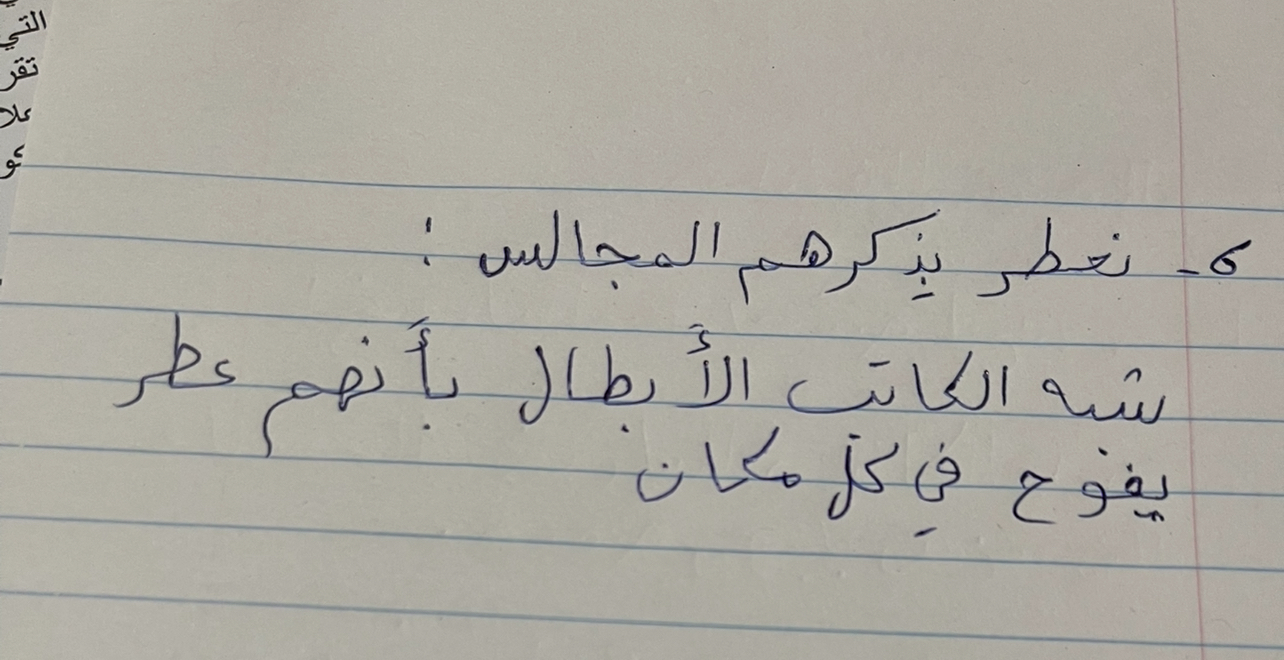 التي
تقر
علا
6- نعطر بذكرهم المجالس :
شبه الكاتب الأبطال بأنهم عطر
يفوح في كل مكان